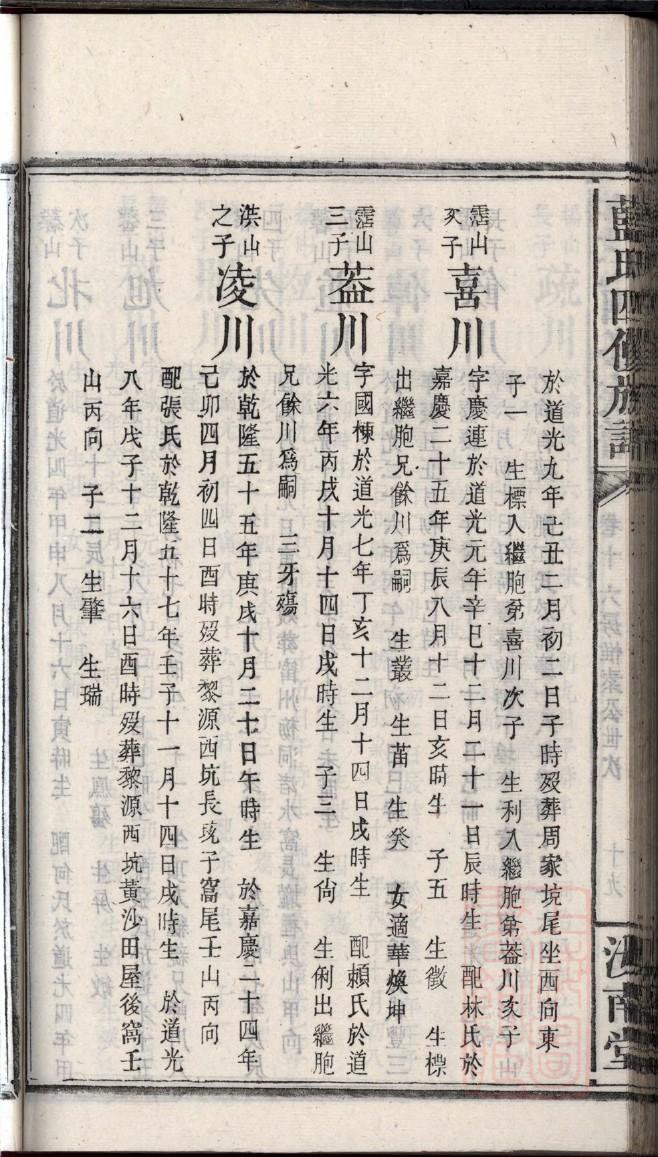 藍氏四修族譜
汝南堂
於道光九年己丑二月初二日子時歿葬周家坑尾坐西向東
子一 生標入繼胞弟喜川次子 生利入繼胞弟葢川次子
霑山次子 喜川
字慶連於道光元年辛巳十二月二十一日辰時生 配林氏於
嘉慶二十五年庚辰八月十二日亥時生 子五 生徵 生標
出繼胞兄餘川為嗣 生叢 生苗 生癸 女適華煥坤
霑山三子 葢川
字國棟於道光七年丁亥十二月十四日戌時生 配賴氏於道
光六年丙戌十月十四日戌時生 子三 生尙 生俐出繼胞
兄餘川為嗣 三牙殤
洪山之子 凌川
於乾隆五十五年庚戌十月二十日午時生 於嘉慶二十四年
己卯四月初四日酉時歿葬黎源西坑長 子窩尾壬山丙向
配張氏於乾隆五十七年壬子十一月十四日戌時生 於道光
八年戊子十二月十六日酉時歿葬黎源西坑黃沙田屋後窩壬
山丙向 子二 生肇 生瑞